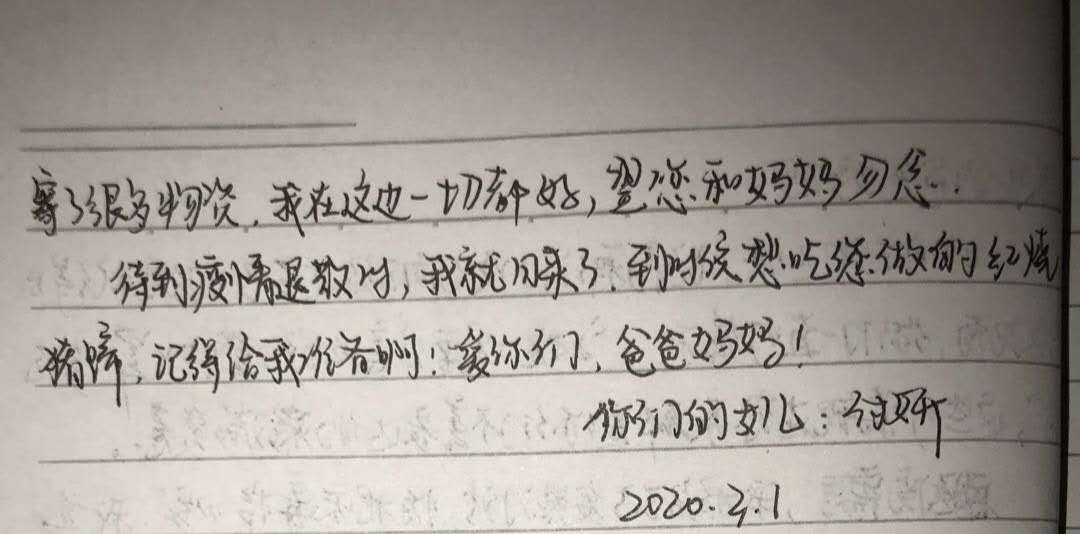 寄了很多物资,我在这边一切都好,望您和妈妈勿念.
待到疫情退散时,我就回来了.到时候想吃您做的红烧
猪蹄,记得给我准备啊!爱你们,爸爸妈妈!
你们的女儿:
2020.2.1